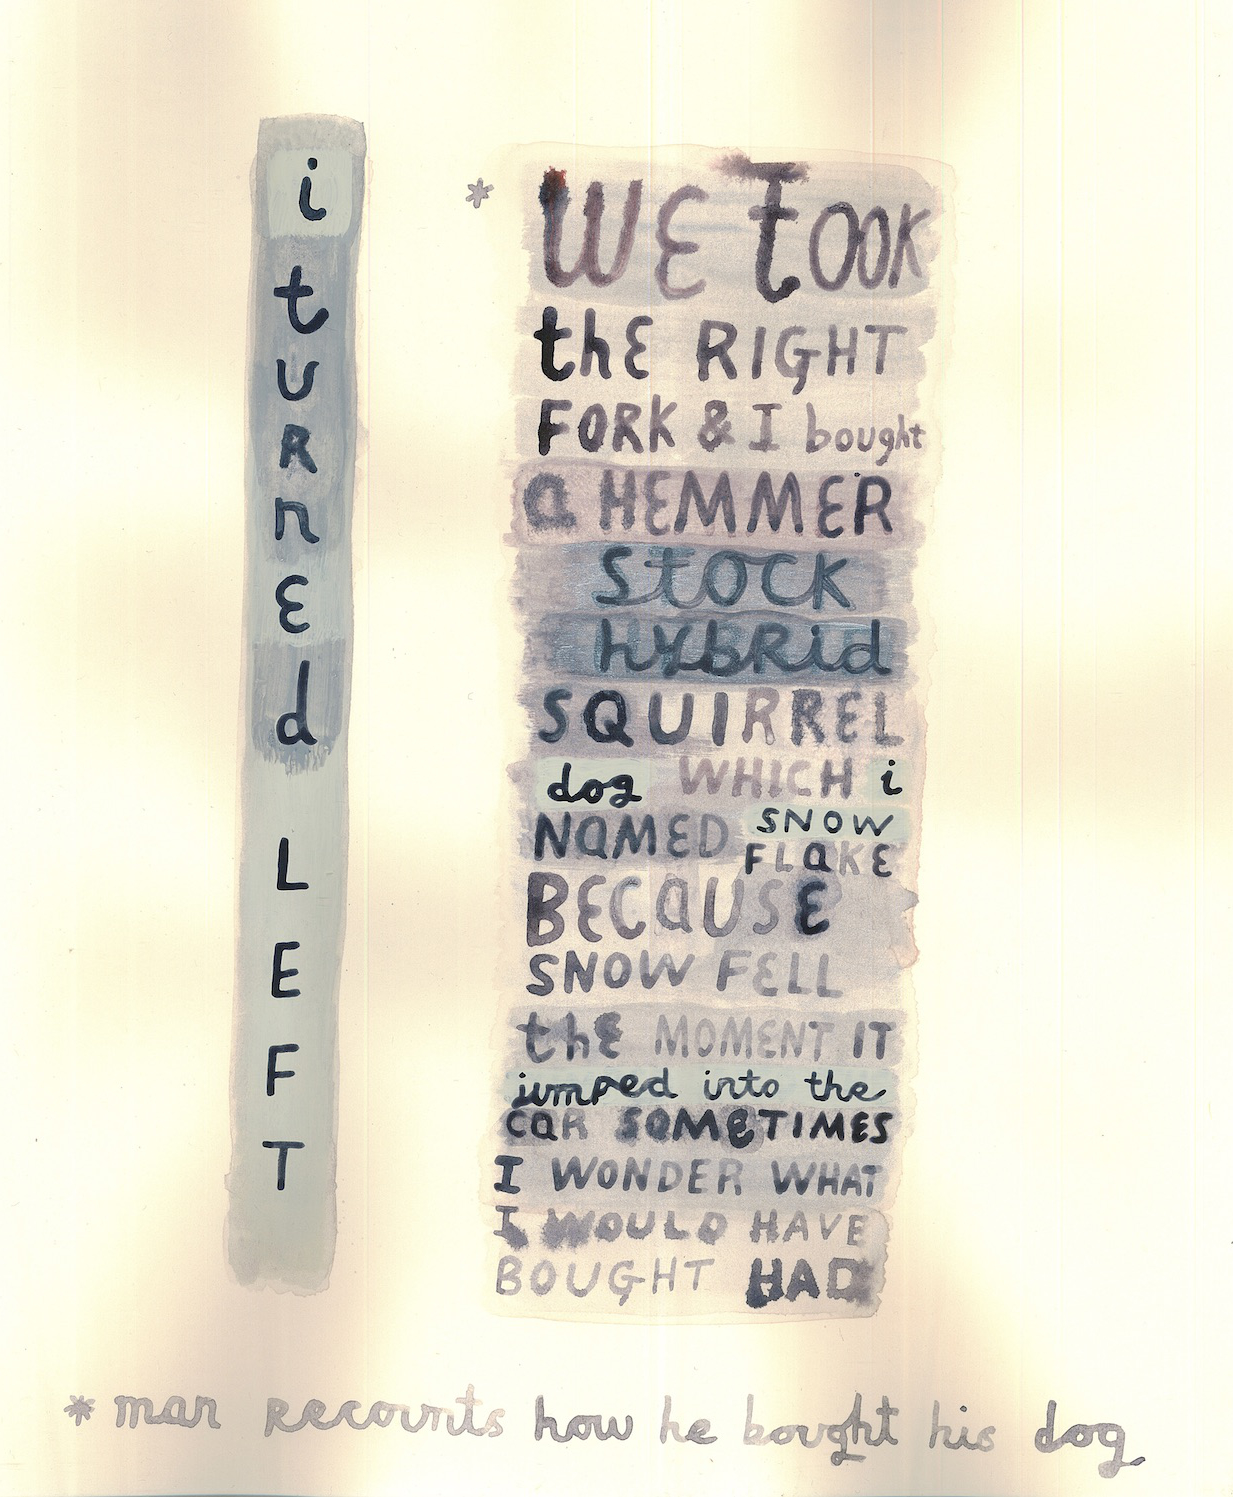 * WE TOOK
thE RIGHT
FORK & I bought
a HEMMER
Stock
hybRid
SQUIRREL
dog WHICH i
NaMED SNOW
FLaKE
BECaUSE
SNOW FELL
thE MOMENT IT
jumped into the
CaR SOMETIMES
I WONDER WHAT
I WOULD HAVE
BOUGHT HAD
i
t
u
R
n
E
d
L
E
F
T
* man recounts how he bought his dog